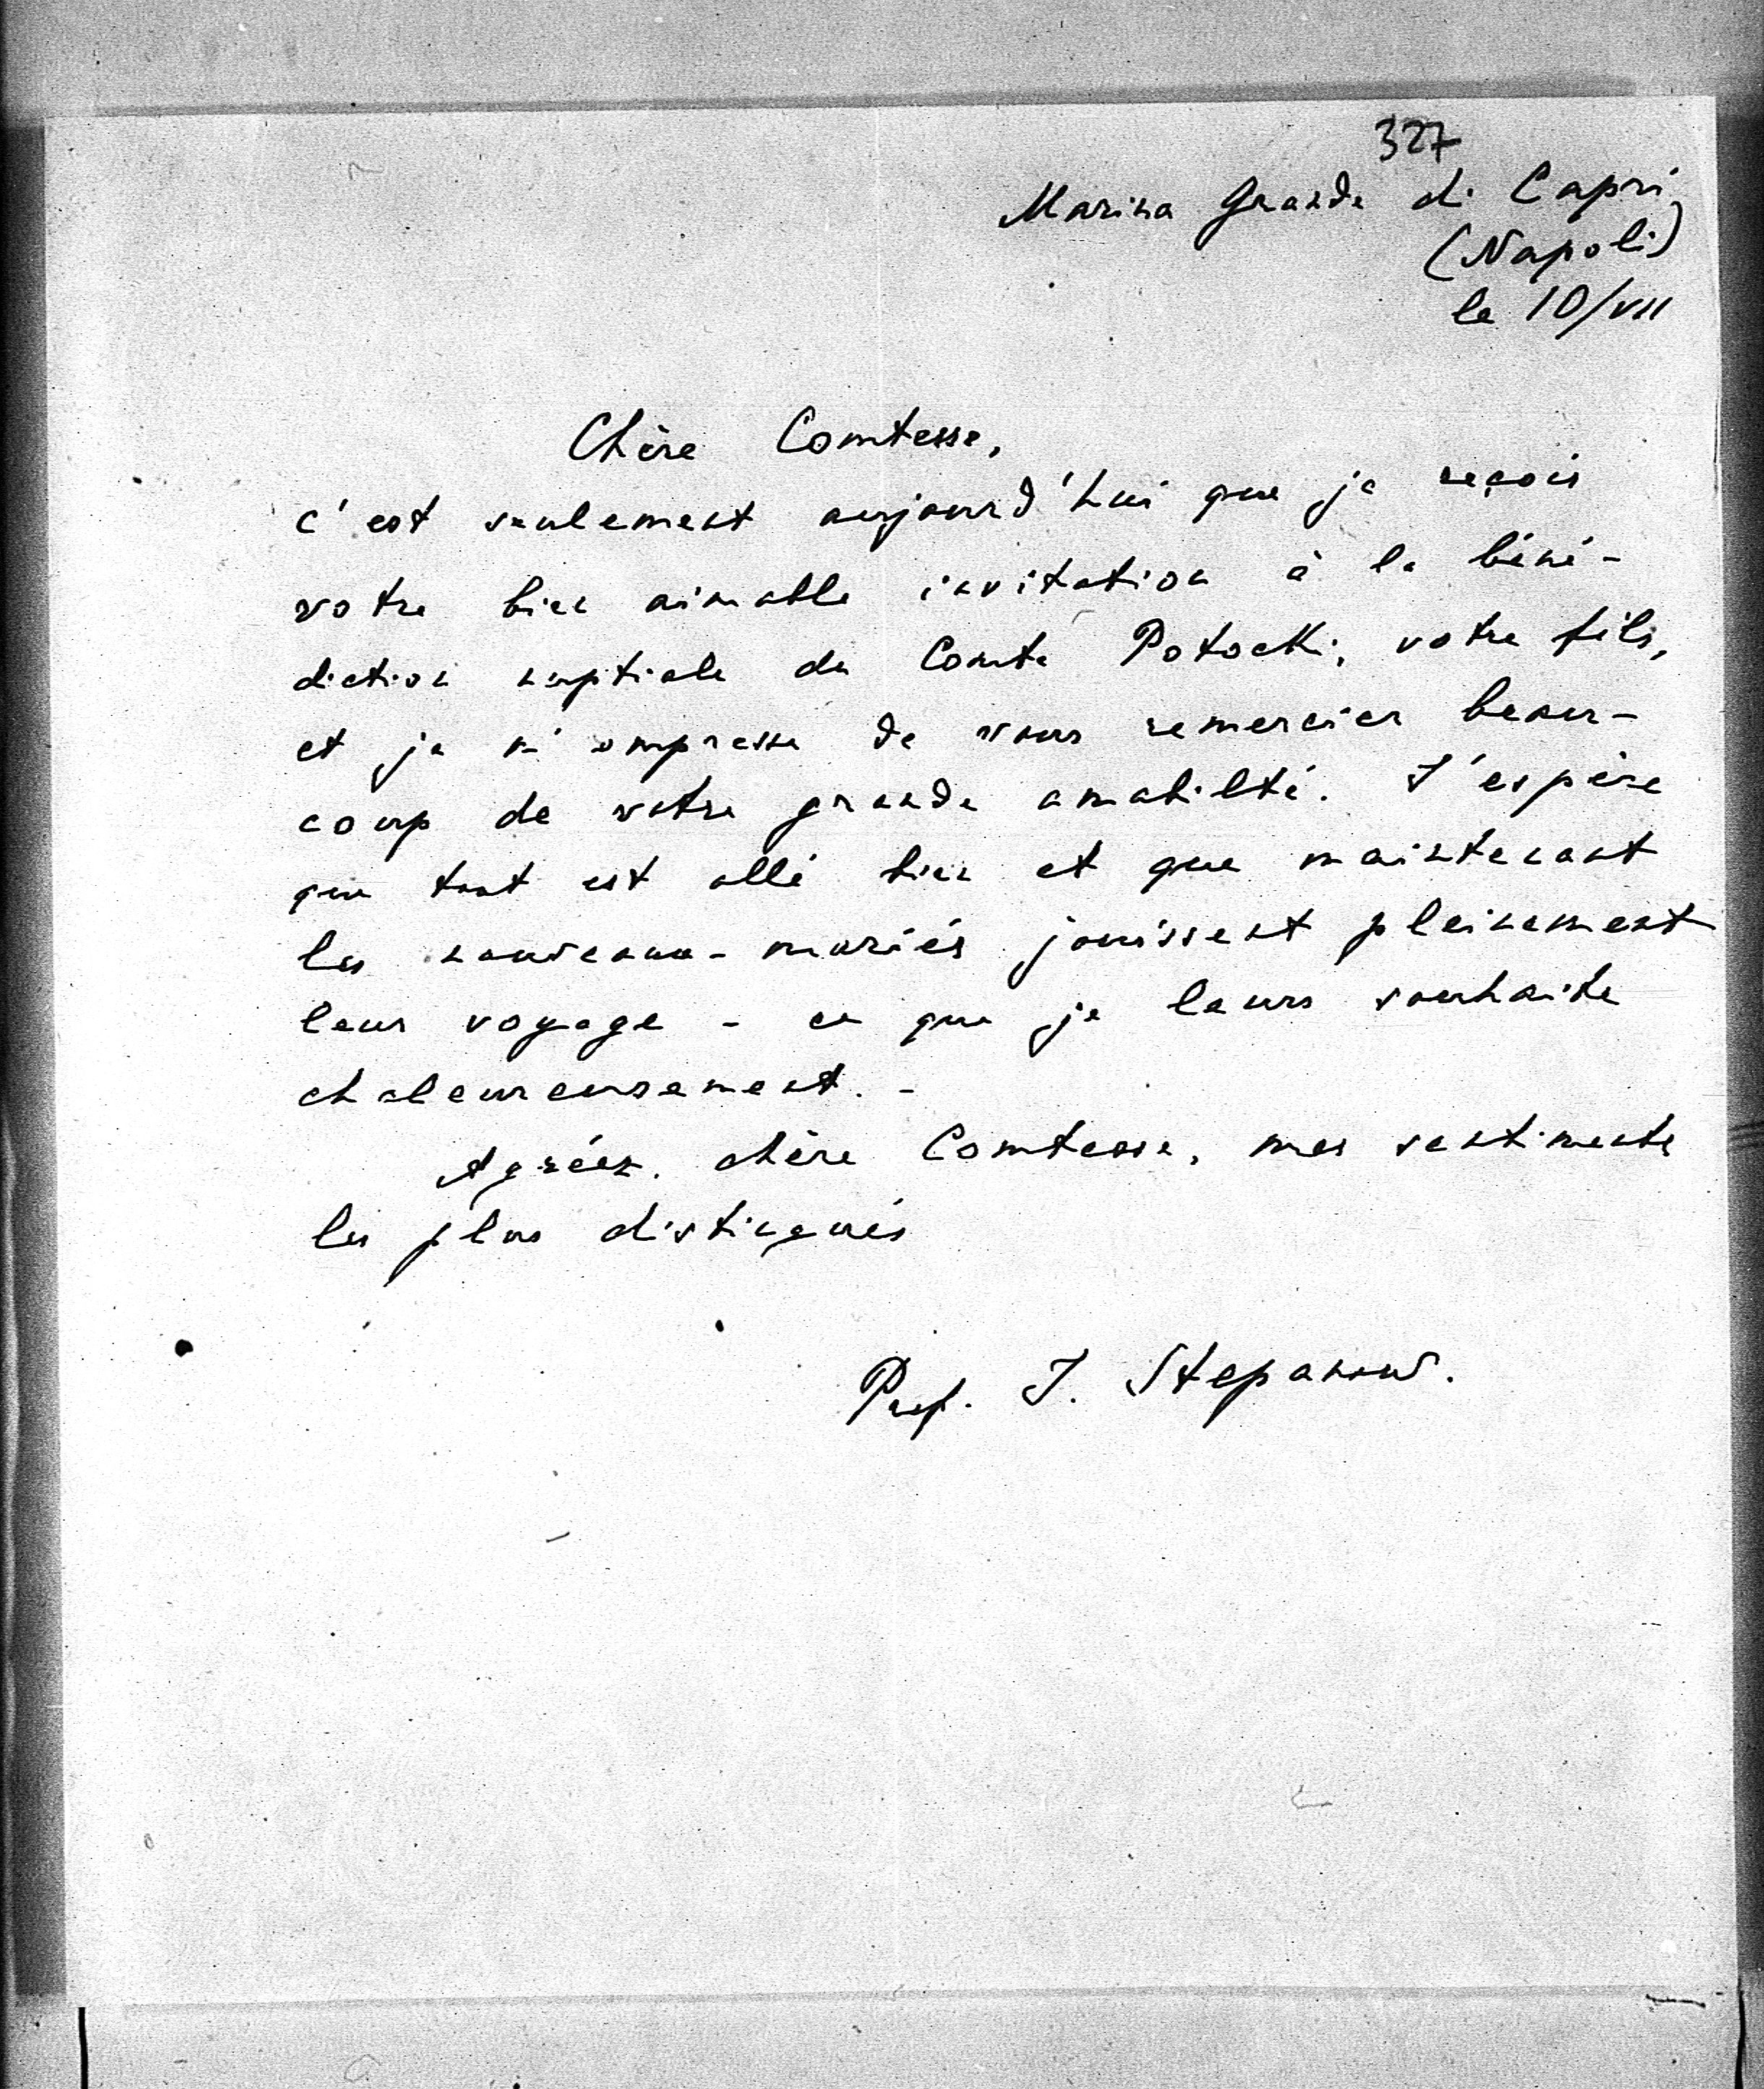 327
Marina Grande di Capri
(Napoli)
le 10/VII
Chère Comtesse,
c'est seulement aujourd'hui que je reçois
votre bien aimable invitation à la béné-
diction nuptiale du Comte Potocki, votre fils,
et je m'empresse de vous remercier beau-
coup de votre grande amabilté. J'espère
que tout est allé bien et que maintenant
les nouveaux-mariés jouissent pleinement
leur voyage - ce que je leurs souhaite
chaleureusement. -
Agréez, chère Comtesse, mes sentiments
les plus distingués
Prof. J. Stepanow.